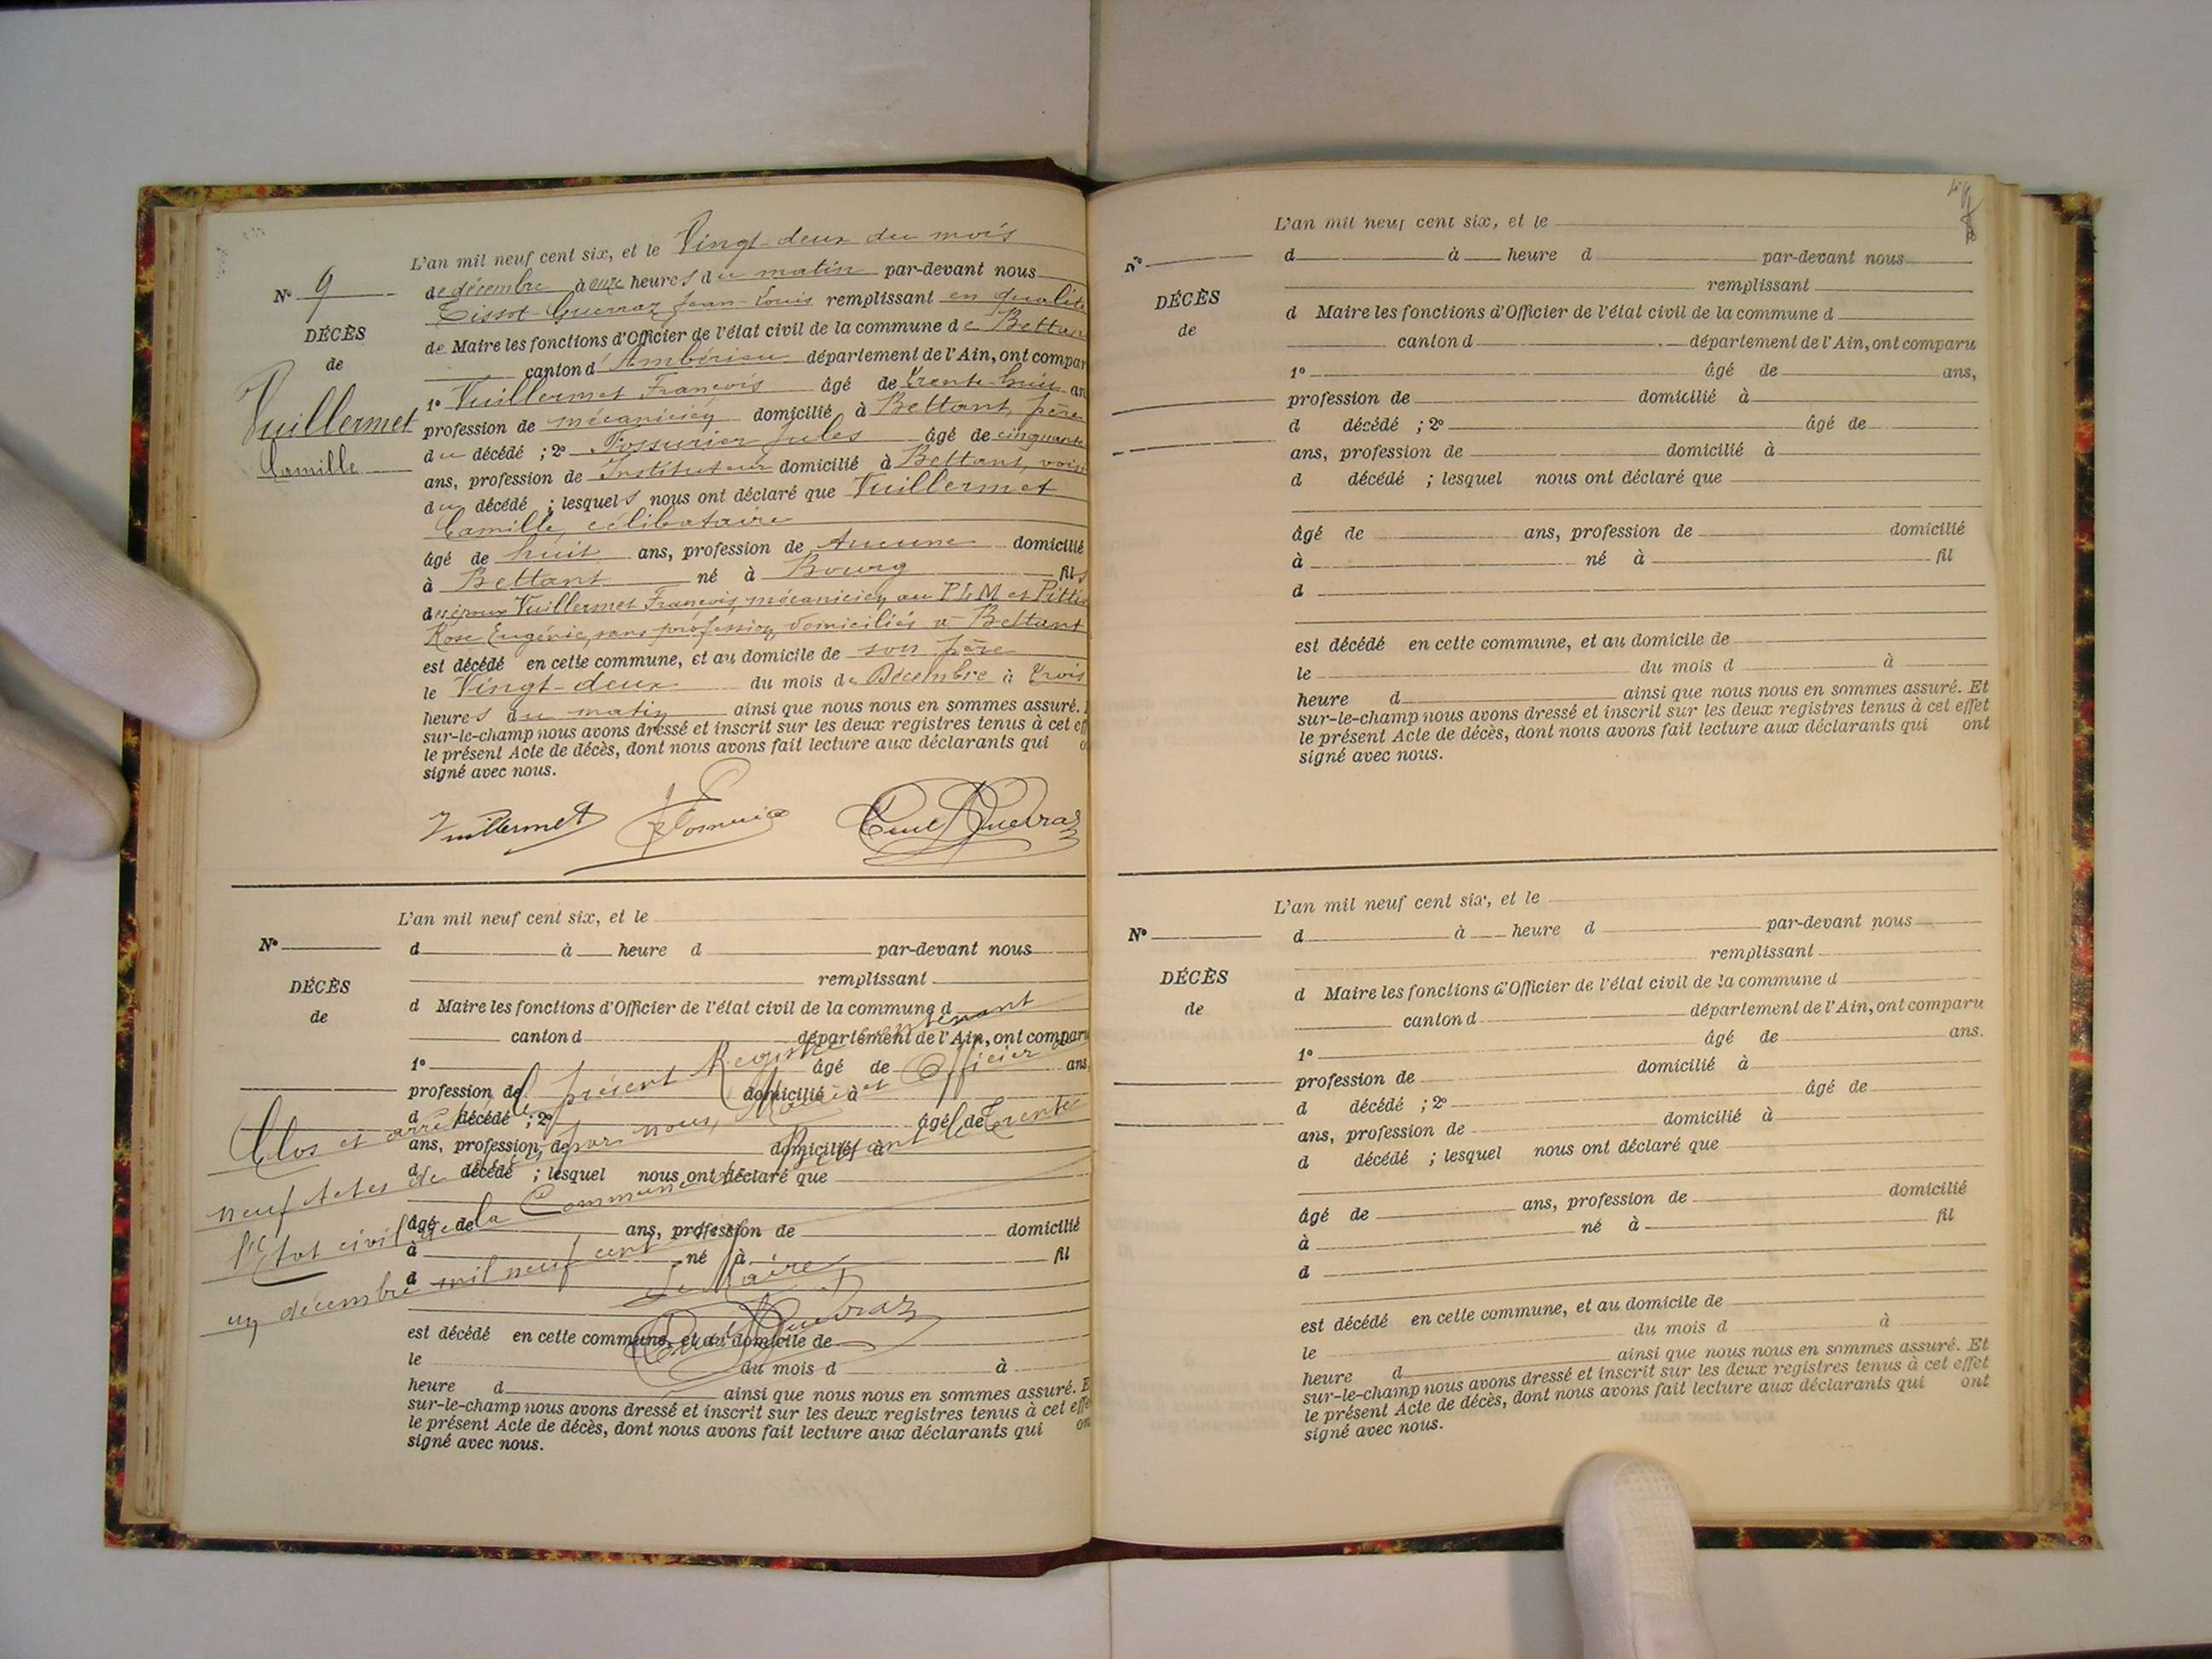 L'an mil neuf cent six, et le Vingt-deux du mois
de décembre à onze heures du matin par-devant nous
Tissot-Guerraz Jean-Louis remplissant en qualité
de Maire les fonctions d'Officier de l'état civil de la commune de Bettan
canton d'Ambérieu département de l'Ain, ont compar
1º Vuillermet François âgé de trente-huit an
profession de mécanicien domicilié à Bettant, père
du décédé ; 2º Jules âgé de cinquante
ans, profession de Instituteur domicilié à Bettant, vois
du décédé ; lesquels nous ont déclaré que Vuillermet
Camille, célibataire
âgé de huit ans, profession de Aucune domicilié
à Bettant né à Bourg fils
des époux Vuillermet François, mécanicien au P L M et Pitti
Rose Eugénie, sans profession, domiciliés à Bettant
est décédé en cette commune, et au domicile de son père
le Vingt-deux du mois de Décembre à trois
heures du matin ainsi que nous nous en sommes assuré.
sur-le-champ nous avons dressé et inscrit sur les deux registres tenus à cet ef
le présent Acte de décès, dont nous avons fait lecture aux déclarants qui o
signé avec nous.
Nº 9
DÉCÈS
de
Vuillermet
Camille
Vuillermet
L'an mil neuf cent six, et le
Nº
d à heure d par-devant nous
DÉCÈS
remplissant
de
d Maire les fonctions d'Officier de l'état civil de la commune d
canton d département de l'Ain, ont comparu
1º âgé de ans,
profession de domicilié à
d décédé ; 2º âgé de
ans, profession de domicilié à
d décédé ; lesquel nous ont déclaré que
âgé de ans, profession de domicilié
à né à fil
d
est décédé en cette commune, et au domicile de
le du mois d à
heure d ainsi que nous nous en sommes assuré. E
sur-le-champ nous avons dressé et inscrit sur les deux registres tenus à cet effe
le présent Acte de décès, dont nous avons fait lecture aux déclarants qui on
signé avec nous.
Clos et arrêté le présent Registre contenant
neuf Actes de décès, par nous, Maire et Officier de
l'Etat civil de la Commune de Bettant le Trente
un décembre mil neuf cent six
Le Maire
L'an mil neuf cent six, et le
Nº
d à heure d par-devant nous
DÉCÈS
remplissant
de
d Maire les fonctions d'Officier de l'état civil de la commune d
canton d département de l'Ain, ont comparu
1º âgé de ans,
profession de domicilié à
d décédé ; 2º âgé de
ans, profession de domicilié à
d décédé ; lesquel nous ont déclaré que
âgé de ans, profession de domicilié
à né à fil
d
est décédé en cette commune, et au domicile de
le du mois d à
heure d ainsi que nous nous en sommes assuré. Et
sur-le-champ nous avons dressé et inscrit sur les deux registres tenus à cet effet
le présent Acte de décès, dont nous avons fait lecture aux déclarants qui ont
signé avec nous.
L'an mil neuf cent six, et le
Nº
d à heure d par-devant nous
DÉCÈS
remplissant
de
d Maire les fonctions d'Officier de l'état civil de la commune d
canton d département de l'Ain, ont comparu
1º âgé de ans.
profession de domicilié à
d décédé ; 2º âgé de
ans, profession de domicilié à
d décédé ; lesquel nous ont déclaré que
âgé de ans, profession de domicilié
à né à fil
d
est décédé en cette commune, et au domicile de
le du mois d à
heure d ainsi que nous nous en sommes assuré. Et
sur-le-champ nous avons dressé et inscrit sur les deux registres tenus à cet effet
le présent Acte de décès, dont nous avons fait lecture aux déclarants qui ont
signé avec nous.